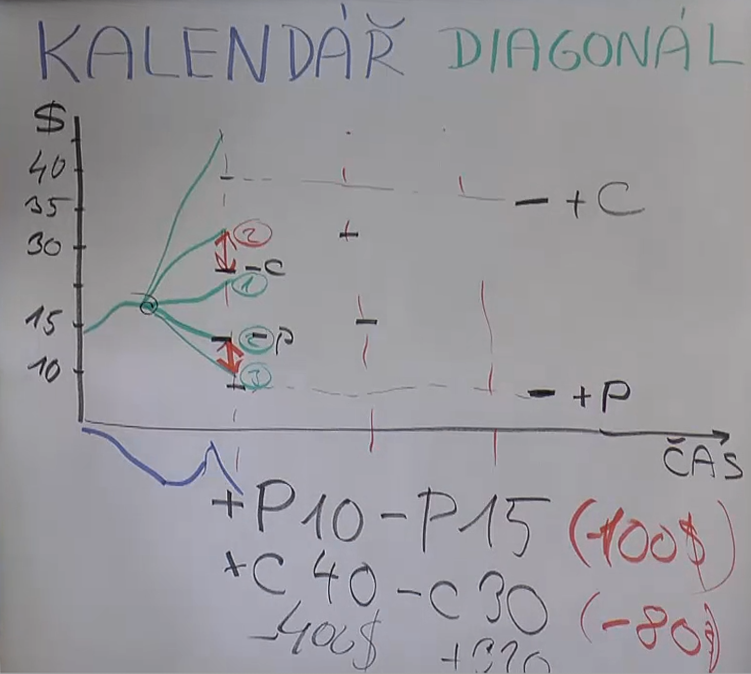 KALENDÁŘ DIAGONÁL
$
40
35 - + C
30 2
- C
1
15
2 - P
10 3
- + P
ČAS
+P10 - P15 (-100$)
+C 40 - C 30 (-80$)
-400$